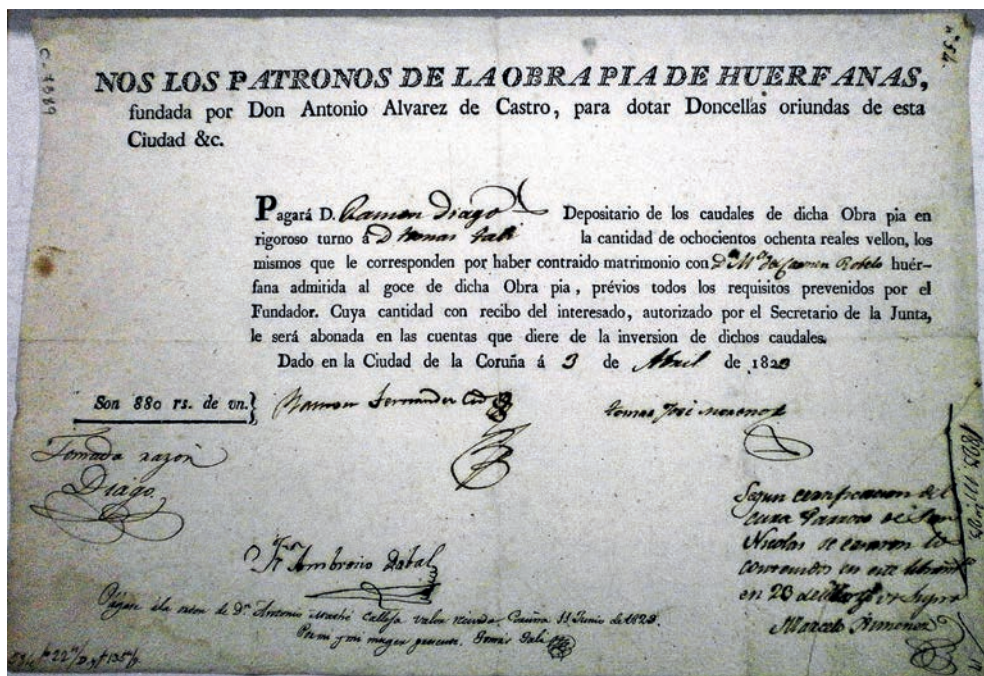 NOS LOS PATRONOS DE LA OBRA PIA DE HUERFANAS,
fundada por Don Antonio Alvarez de Castro, para dotar Doncellas oriundas de esta
Ciudad &c.
Pagará D. Ramon Diago Depositario de los caudales de dicha Obra pia en
rigoroso turno á D. Tomas Fali la cantidad de ochocientos ochenta reales vellon, los
mismos que le corresponden por haber contraido matrimonio con Dª Mª del Carmen Botelo huér-
fana admitida al goce de dicha Obra pia, prévios todos los requisitos prevenidos por el
Fundador. Cuya cantidad con recibo del interesado, autorizado por el Secretario de la Junta,
le será abonada en las cuentas que diere de la inversion de dichos caudales.
Dado en la Ciudad de la Coruña á 3 de Abril de 1823
Son 880 rs. de vn.} Ramon Fernandez Cid
tomas José Moreno
Tomada razon
Diago
Segun certificacion del
cura Parroco de San
Nicolas se casaron los
contenidos en este
en 23 de
Marcelo
Fr. Ambrosio Rabal
Páguese á la orden de Dn. Antonio calleja valor recivido. Coruña 11 Junio de 1823.
Por mi y mi muger presente.